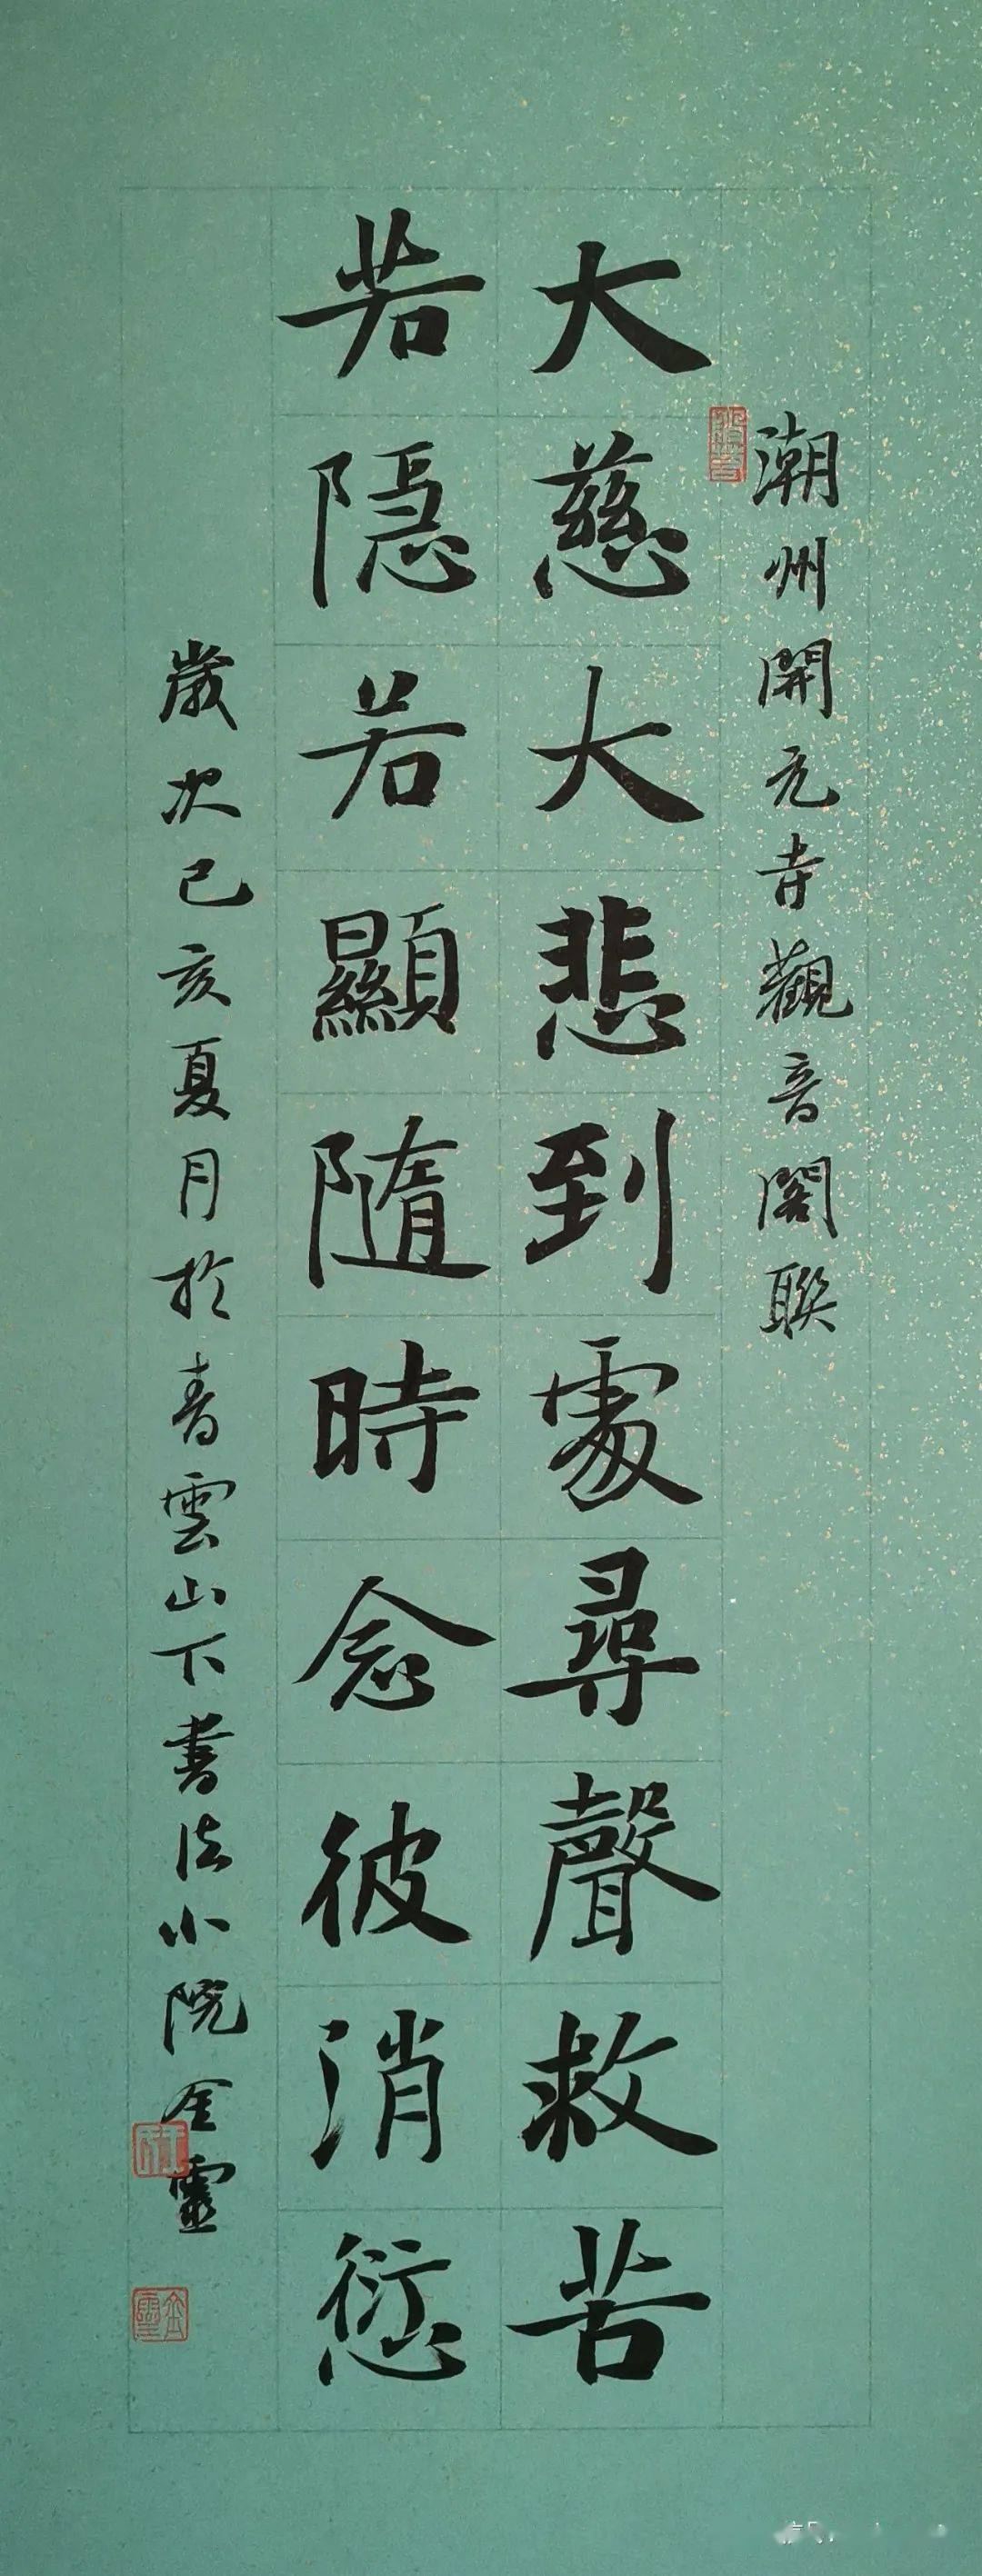 潮州開元寺觀音閣聯
大慈大悲到處尋聲救苦
若隱若顯隨時念彼消愆
歲次己亥夏月於青雲山下書法小院金靈